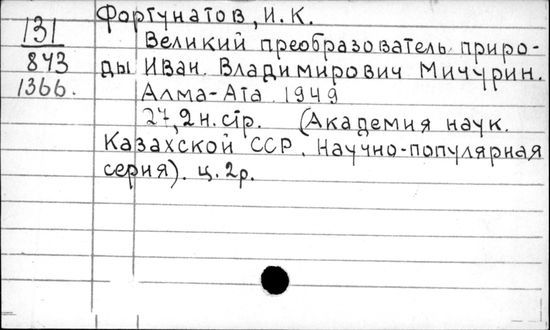 Фортунатов, И.К.
131
Великий преобразователь приро-
843
ды Иван Владимирович Мичурин.
1366.
Алма-Ата 1949
27, 2 н. стр. (Академия наук.
Казахской ССР. Научно-популярная
серия). ц. 2р.